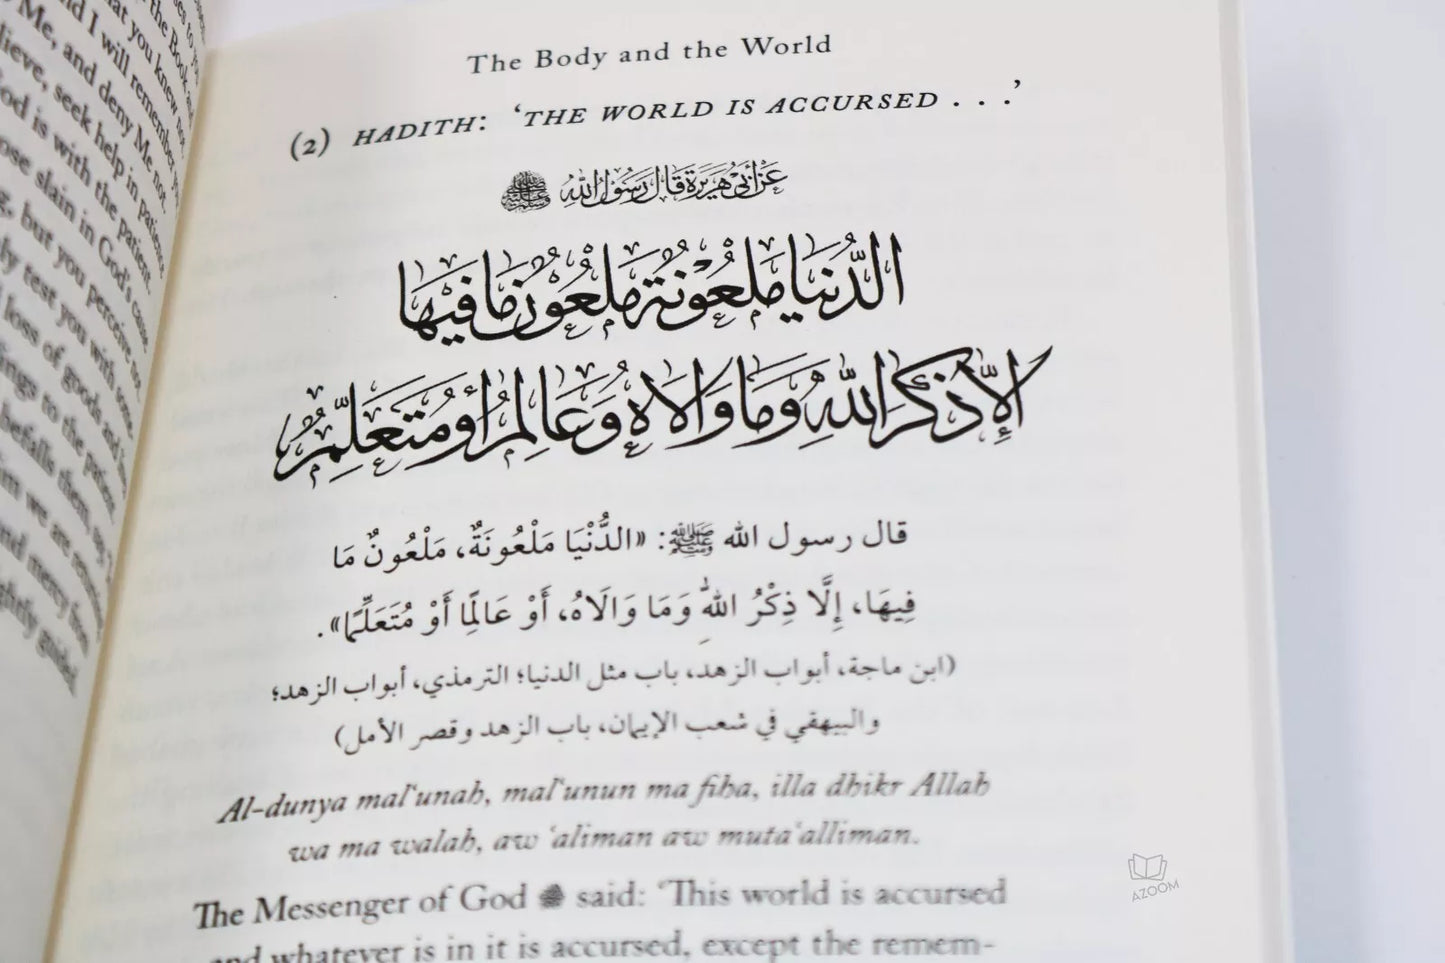 to you
the Book and
that you knew not.
and I will remember you
Me, and deny Me not.
lieve, seek help in patience
God is with the patient.
ose slain in God's cause
g, but you perceive not
ly test you with some
loss of goods and lives
dings to the patient,
befalls them, say
im we are
and mercy from
rightly guided
The Body and the World
(2) HADITH: ‘THE WORLD IS ACCURSED . . .’
عَنْ أَبِي هُرَيْرَةَ قَالَ رَسُولُ اللهِ ﷺ
الدُّنْيَا مَلْعُونَةٌ مَلْعُونٌ مَا فِيهَا
إِلَّا ذِكْرَ اللهِ وَمَا وَالَاهُ وَعَالِمٌ أَوْ مُتَعَلِّمٌ
قال رسول الله ﷺ: «الدُّنْيَا مَلْعُونَةٌ، مَلْعُونٌ مَا
فِيهَا، إِلَّا ذِكْرُ اللهِ وَمَا وَالَاهُ، أَوْ عَالِمًا أَوْ مُتَعَلِّمًا».
(ابن ماجة، أبواب الزهد، باب مثل الدنيا؛ الترمذي، أبواب الزهد؛
والبيهقي في شعب الإيمان، باب الزهد وقصر الأمل)
Al-dunya mal‘unah, mal‘unun ma fiha, illa dhikr Allah
wa ma walah, aw ‘aliman aw muta‘alliman.
The Messenger of God ﷺ said: ‘This world is accursed
and whatever is in it is accursed, except the remem-
AZOOM